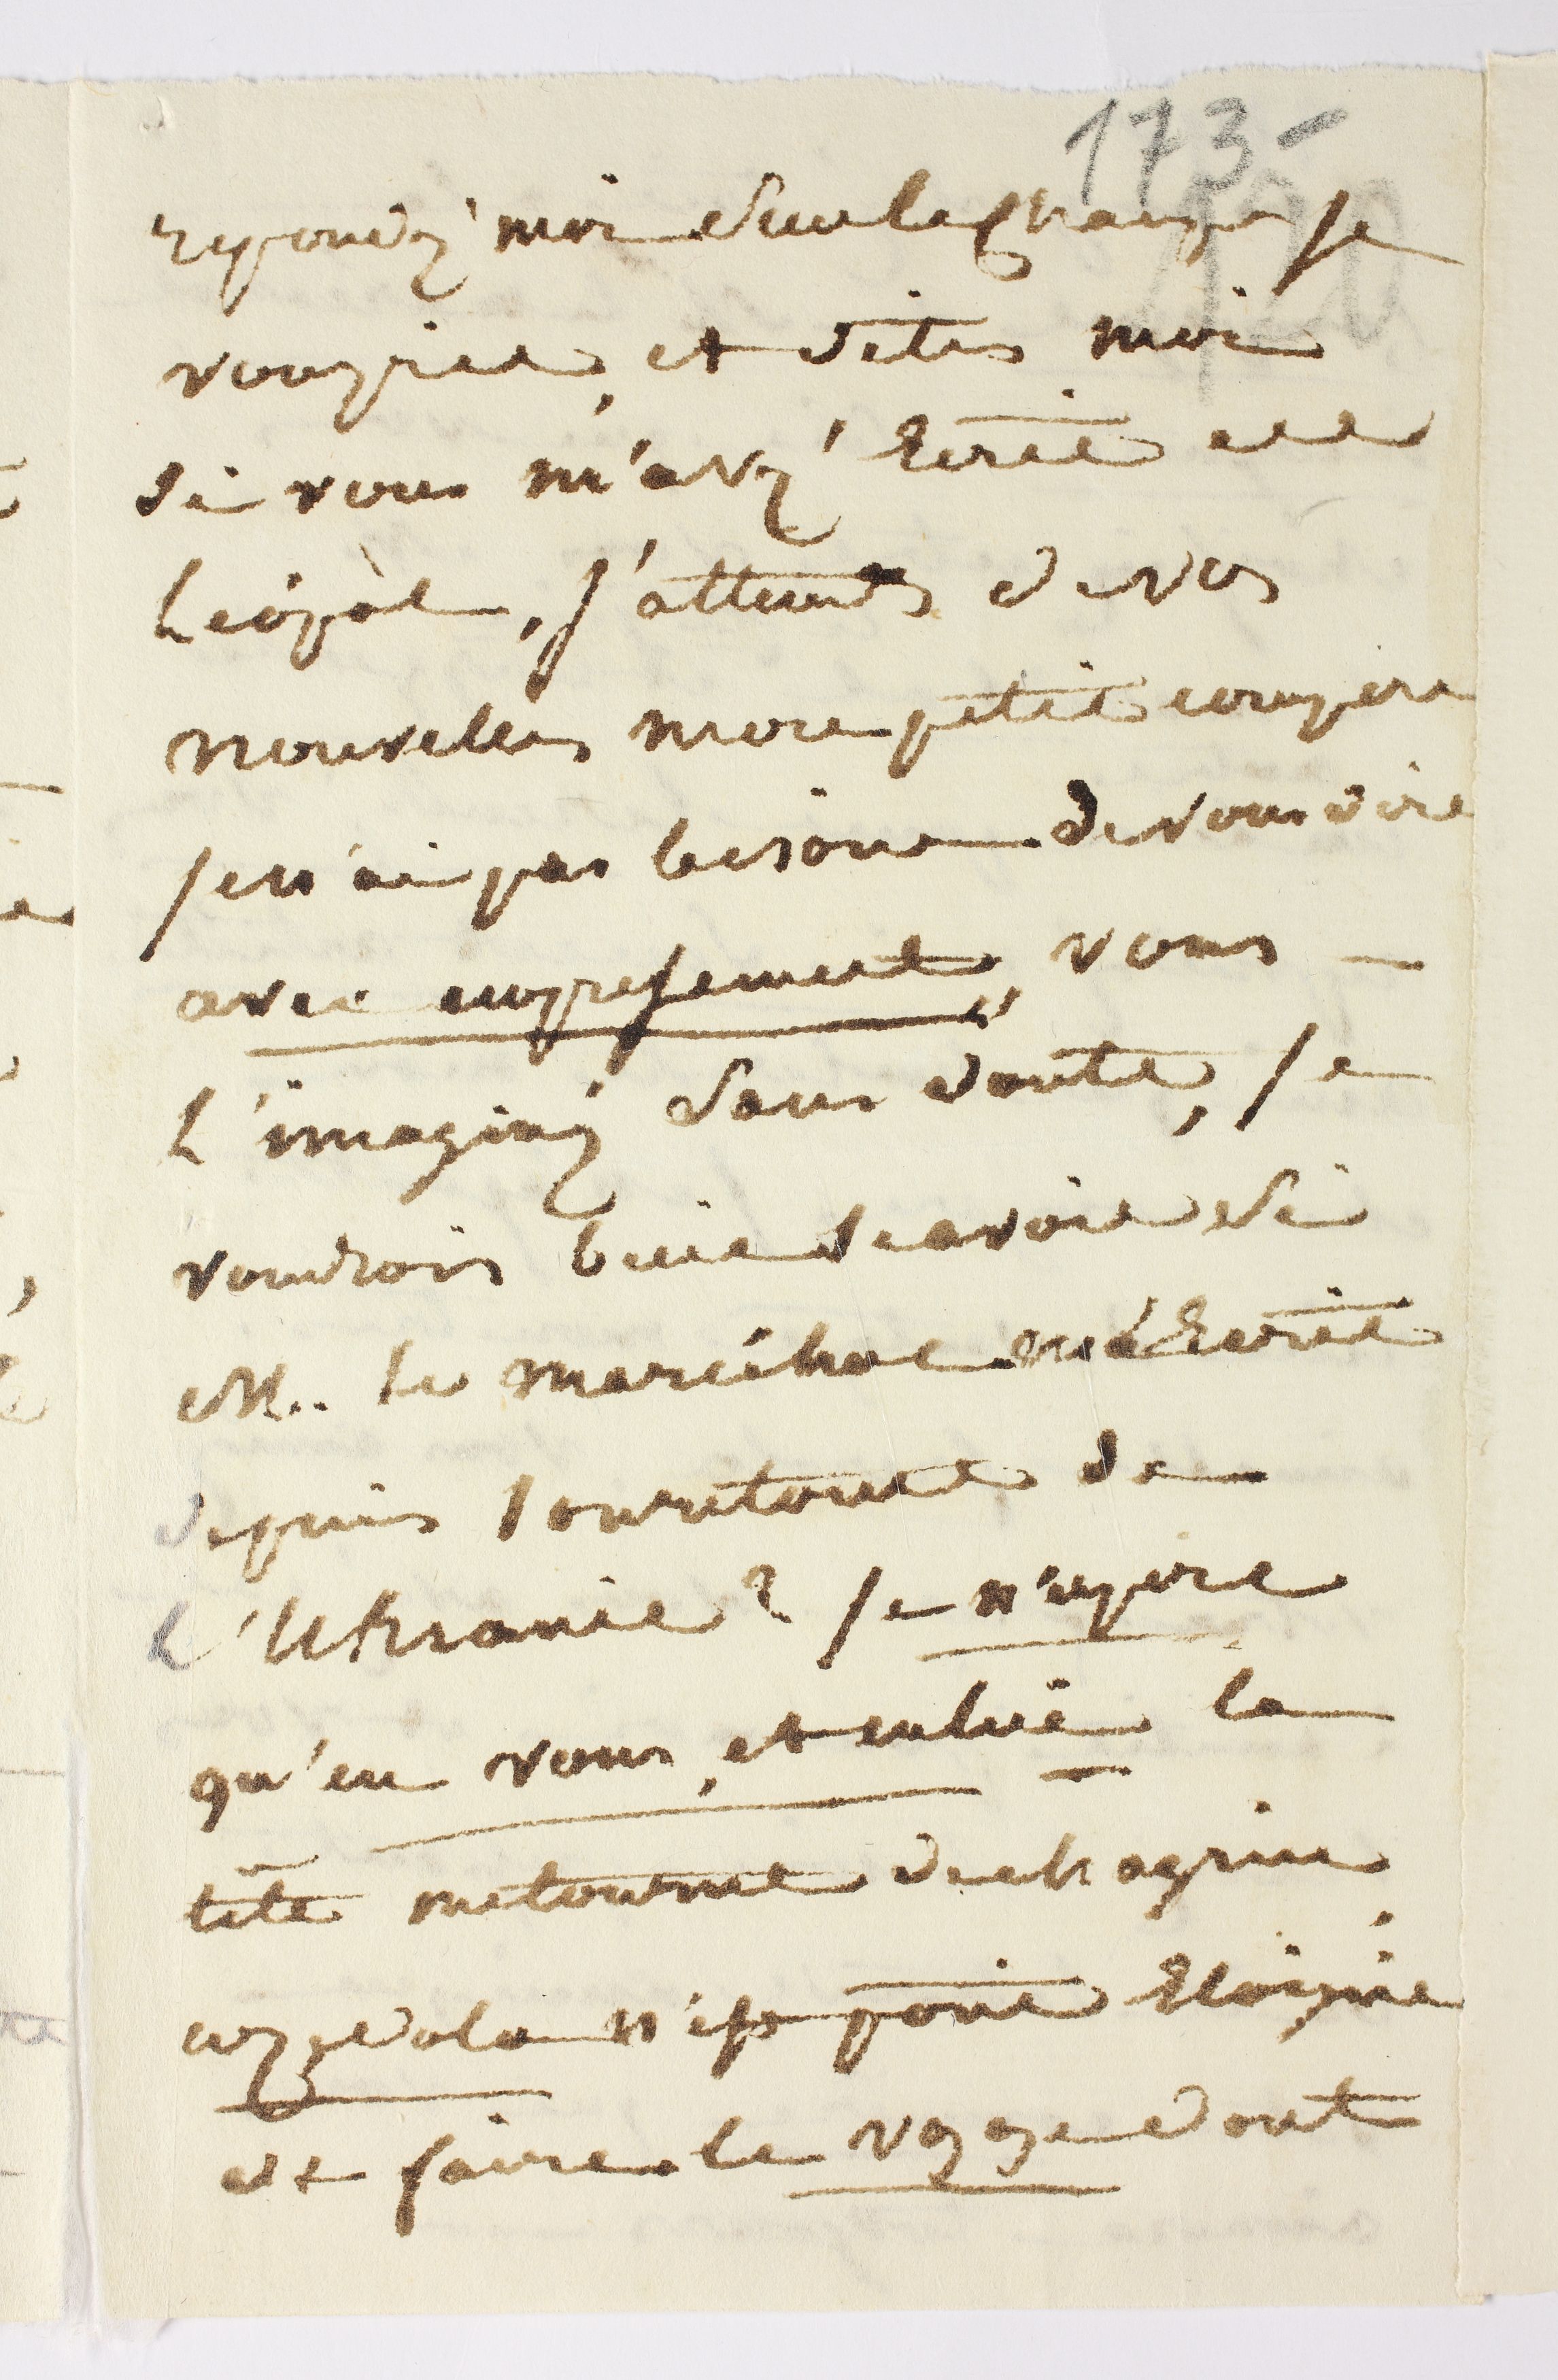 173-
repondez moi sur la champ je
vous pried, et dites moi
si vous m'avez Ecrit a
Leopol, j'attends de vos
nouvelles mon petit compere
je n'ai pas besoin de vous dire
avec empressement, vous
l'imaginez sans doute, je
voudrois bien scavoir si
M.. le marechal m'a Ecrit
depuis son retour de
l'Ukranie? je n'espere
qu'en vous, et en lui la
tête me tourne de chagrin
cozzedola n'est point Eloigné
et faire le voyage dont